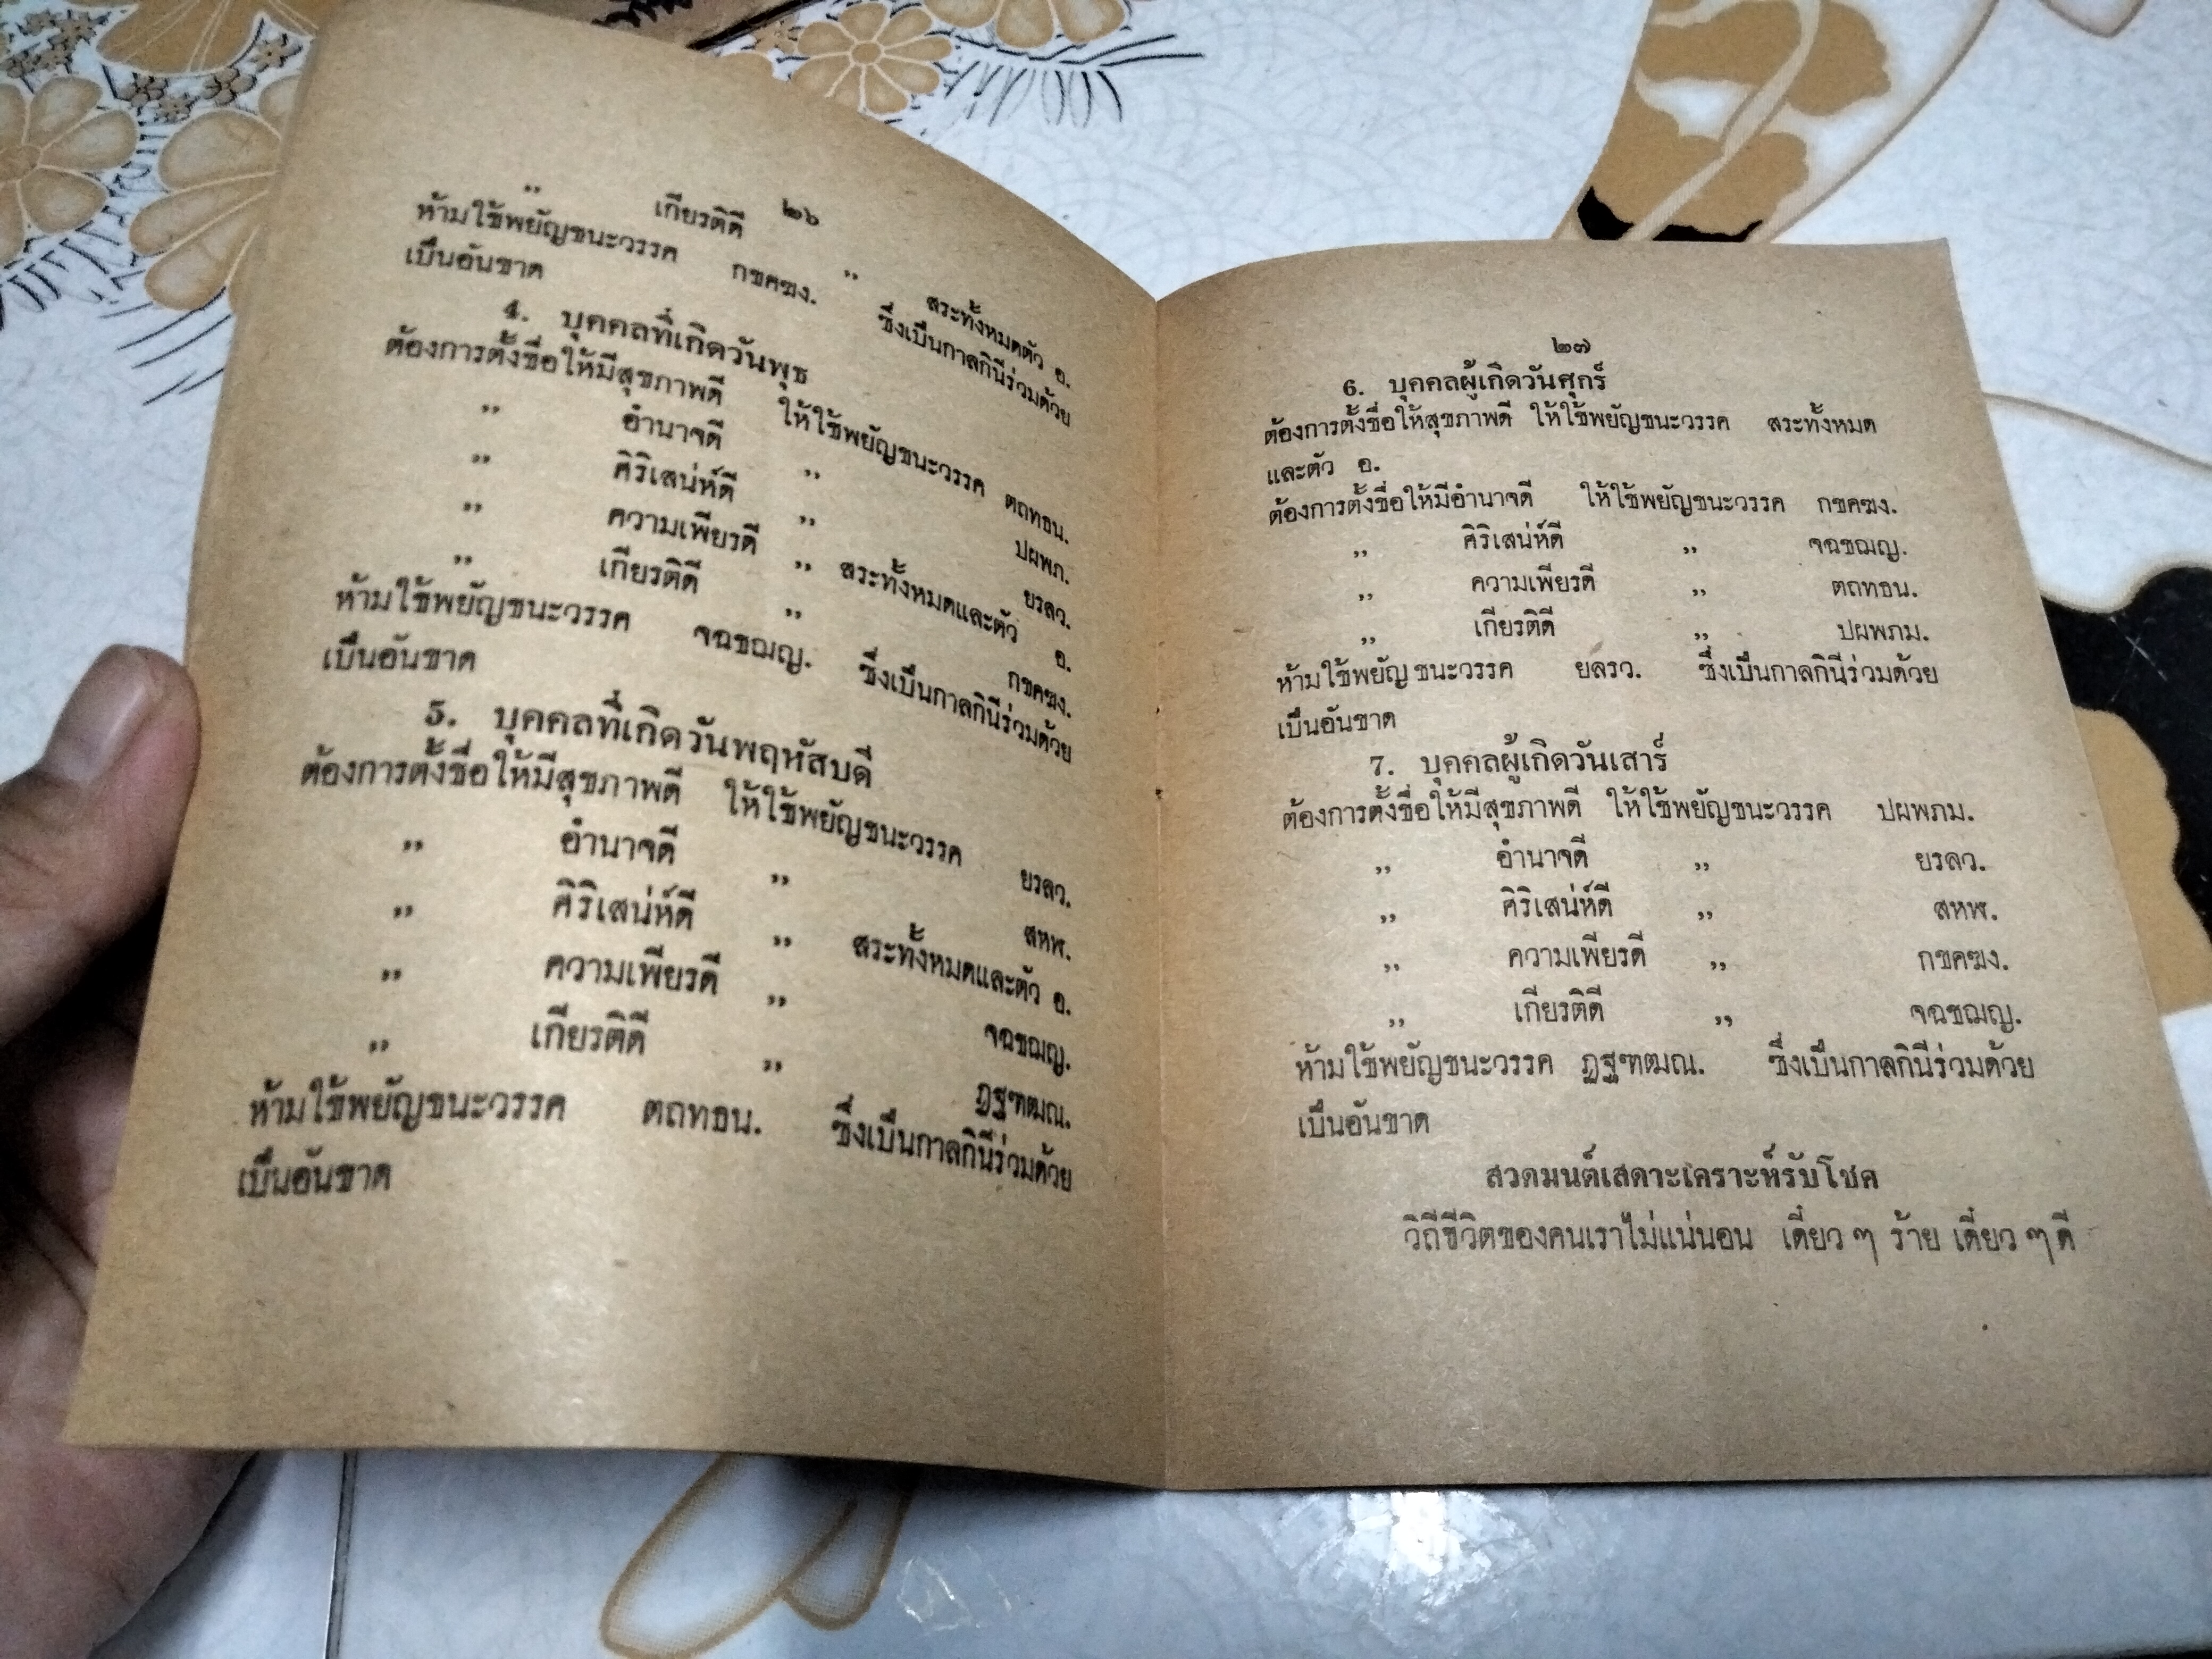 ๒๖
,, เกียรติดี ,, สระทั้งหมดตัว อ.
ห้ามใช้พยัญชนะวรรค กขคฆง. ซึ่งเป็นกาลกินีร่วมด้วย
เป็นอันขาด
4. บุคคลที่เกิดวันพุธ
ต้องการตั้งชื่อให้มีสุขภาพดี ให้ใช้พยัญชนะวรรค ตถทธน.
,, อำนาจดี ,, ปผพภ.
,, ศิริเสน่ห์ดี ,, ยรลว.
,, ความเพียรดี ,, สระทั้งหมดและตัว อ.
,, เกียรติดี ,, กขคฆง.
ห้ามใช้พยัญชนะวรรค จฉชฌญ. ซึ่งเป็นกาลกินีร่วมด้วย
เป็นอันขาด
5. บุคคลที่เกิดวันพฤหัสบดี
ต้องการตั้งชื่อให้มีสุขภาพดี ให้ใช้พยัญชนะวรรค ยรลว.
,, อำนาจดี ,, สหฬ.
,, ศิริเสน่ห์ดี ,, สระทั้งหมดและตัว อ.
,, ความเพียรดี ,, จฉชฌญ.
,, เกียรติดี ,, ฏฐฑฒณ.
ห้ามใช้พยัญชนะวรรค ตถทธน. ซึ่งเป็นกาลกินีร่วมด้วย
เป็นอันขาด
๒๗
6. บุคคลผู้เกิดวันศุกร์
ต้องการตั้งชื่อให้สุขภาพดี ให้ใช้พยัญชนะวรรค สระทั้งหมด
และตัว อ.
ต้องการตั้งชื่อให้มีอำนาจดี ให้ใช้พยัญชนะวรรค กขคฆง.
,, ศิริเสน่ห์ดี ,, จฉชฌญ.
,, ความเพียรดี ,, ตถทธน.
,, เกียรติดี ,, ปผพภม.
ห้ามใช้พยัญชนะวรรค ยลรว. ซึ่งเป็นกาลกินีร่วมด้วย
เป็นอันขาด
7. บุคคลผู้เกิดวันเสาร์
ต้องการตั้งชื่อให้มีสุขภาพดี ให้ใช้พยัญชนะวรรค ปผพภม.
,, อำนาจดี ,, ยรลว.
,, ศิริเสน่ห์ดี ,, สหฬ.
,, ความเพียรดี ,, กขคฆง.
,, เกียรติดี ,, จฉชฌญ.
ห้ามใช้พยัญชนะวรรค ฏฐฑฒณ. ซึ่งเป็นกาลกินีร่วมด้วย
เป็นอันขาด
สวดมนต์เสดาะเคราะห์รับโชค
วิถีชีวิตของคนเราไม่แน่นอน เดี๋ยว ๆ ร้าย เดี๋ยว ๆ ดี